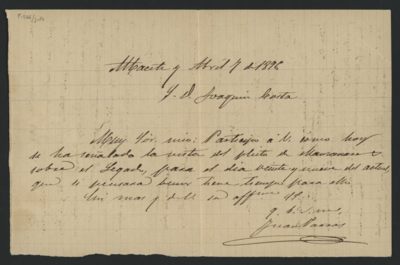 Albacete y Abril 7 de 1896
S. D. Joaquin Costa
Muy Sór. mio: Participo á V. como hoy
se ha señalado la vista del pleito de Manzanares
sobre el Legado, para el dia veinte y nueve del actual,
que si piensa venir tiene tiempo para ello.
Sin mas q. de V. su affmo. SS.
q. b. s. m.
Juan